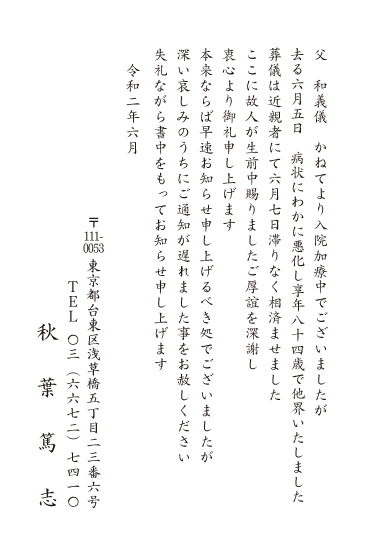 父　和義儀　かねてより入院加療中でございましたが
去る六月五日　病状にわかに悪化し享年八十四歳で他界いたしました
葬儀は近親者にて六月七日滞りなく相済ませました
ここに故人が生前中賜りましたご厚誼を深謝し
衷心より御礼申し上げます
本来ならば早速お知らせ申し上げるべき処でございましたが
深い哀しみのうちにご通知が遅れました事をお赦しください
失礼ながら書中をもってお知らせ申し上げます
令和二年六月
〒111-0053 東京都台東区浅草橋五丁目二三番六号
ＴＥＬ 〇三（六六七二）七四一〇
秋葉篤志